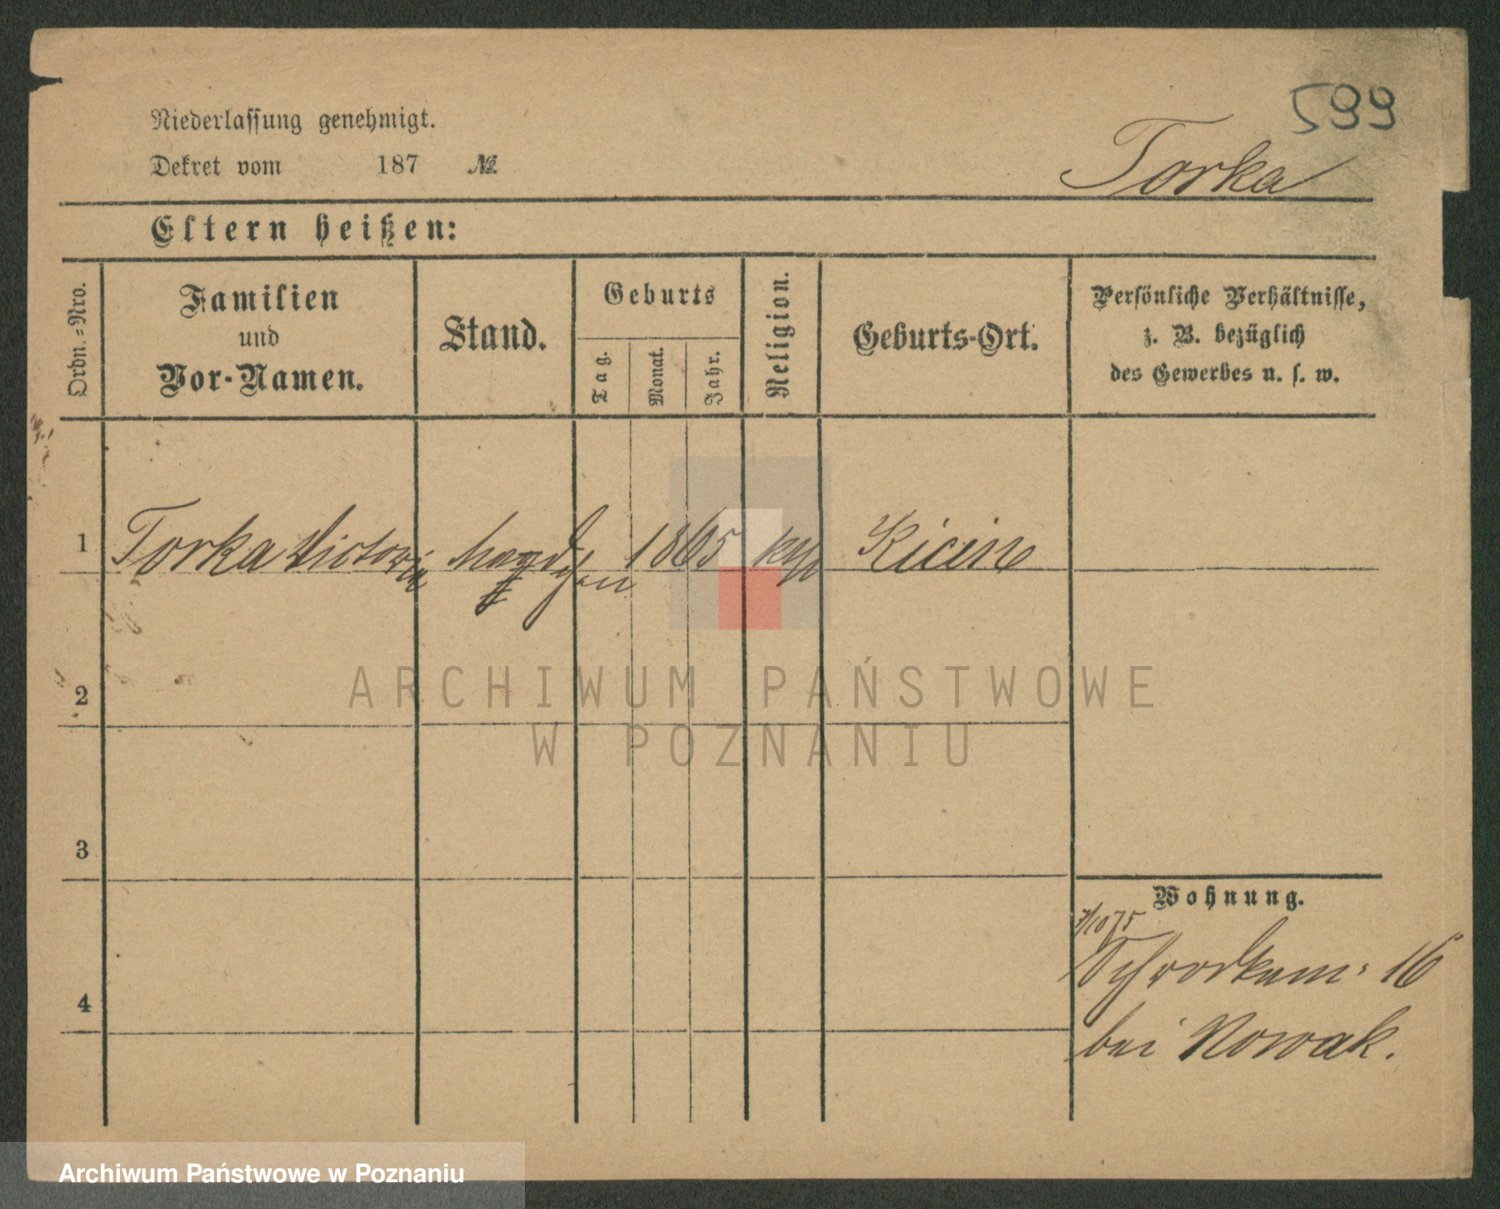 599
Niederlassung genehmigt.
Dekret vom 187 №
Torka
Eltern heißen:
Ordn.-Nro.
Familien
und
Vor-Namen.
Stand.
Geburts
Tag.
Monat.
Jahr.
Religion.
Geburts-Ort.
Persönliche Verhältnisse,
z. B. bezüglich
des Gewerbes u. s. w.
1 Torka Victoria 1865 Kicin
2
ARCHIWUM PAŃSTWOWE
W POZNANIU
3
Wohnung.
7/10 75
4 16
bei Nowak.
Archiwum Państwowe w Poznaniu